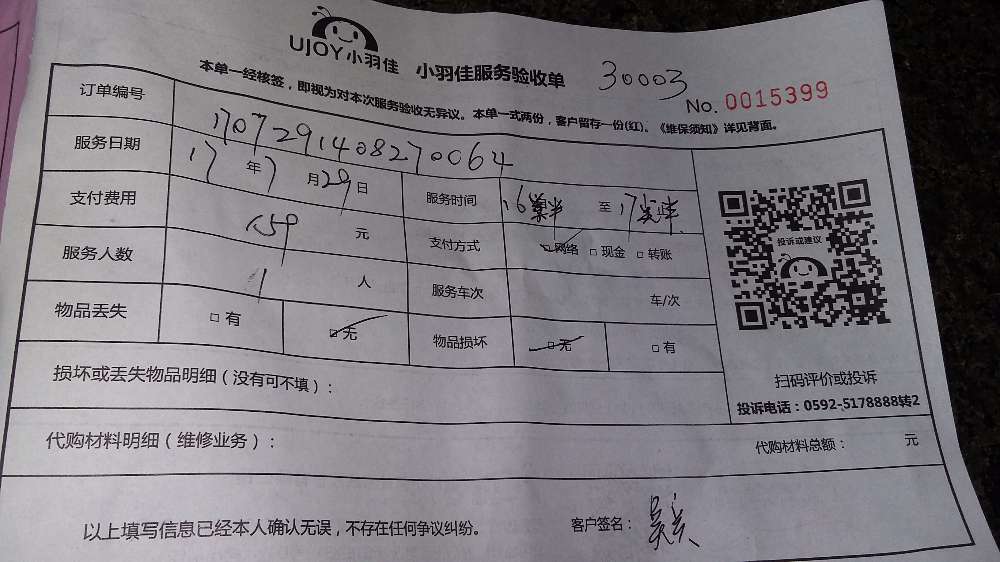 UJOY小羽佳 小羽佳服务验收单 30003
No. 0015399
本单一经核签，即视为对本次服务验收无异议。本单一式两份，客户留存一份(红)。《维保须知》详见背面。
订单编号 1707291408270064
服务日期 17年7月29日 服务时间 16 半 至 17 半
支付费用 159 元 支付方式 □网络 □现金 □转账
服务人数 1 人 服务车次 车/次
物品丢失 □有 □无 物品损坏 □无 □有
投诉或建议
扫码评价或投诉
投诉电话：0592-5178888转2
损坏或丢失物品明细（没有可不填）：
代购材料明细（维修业务）： 代购材料总额： 元
以上填写信息已经本人确认无误，不存在任何争议纠纷。 客户签名：